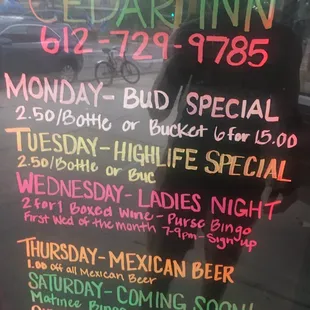 CEDAR INN
612-729-9785
MONDAY- BUD SPECIAL
2.50/Bottle or Bucket 6 for 15.00
TUESDAY- HIGHLIFE SPECIAL
2.50/Bottle or Buc
WEDNESDAY- LADIES NIGHT
2 for 1 Boxed Wine - Purse Bingo
First Wed of the month 7-9pm - Sign up
THURSDAY- MEXICAN BEER
1.00 off all Mexican Beer
SATURDAY- COMING SOON!
Matinee Bingo